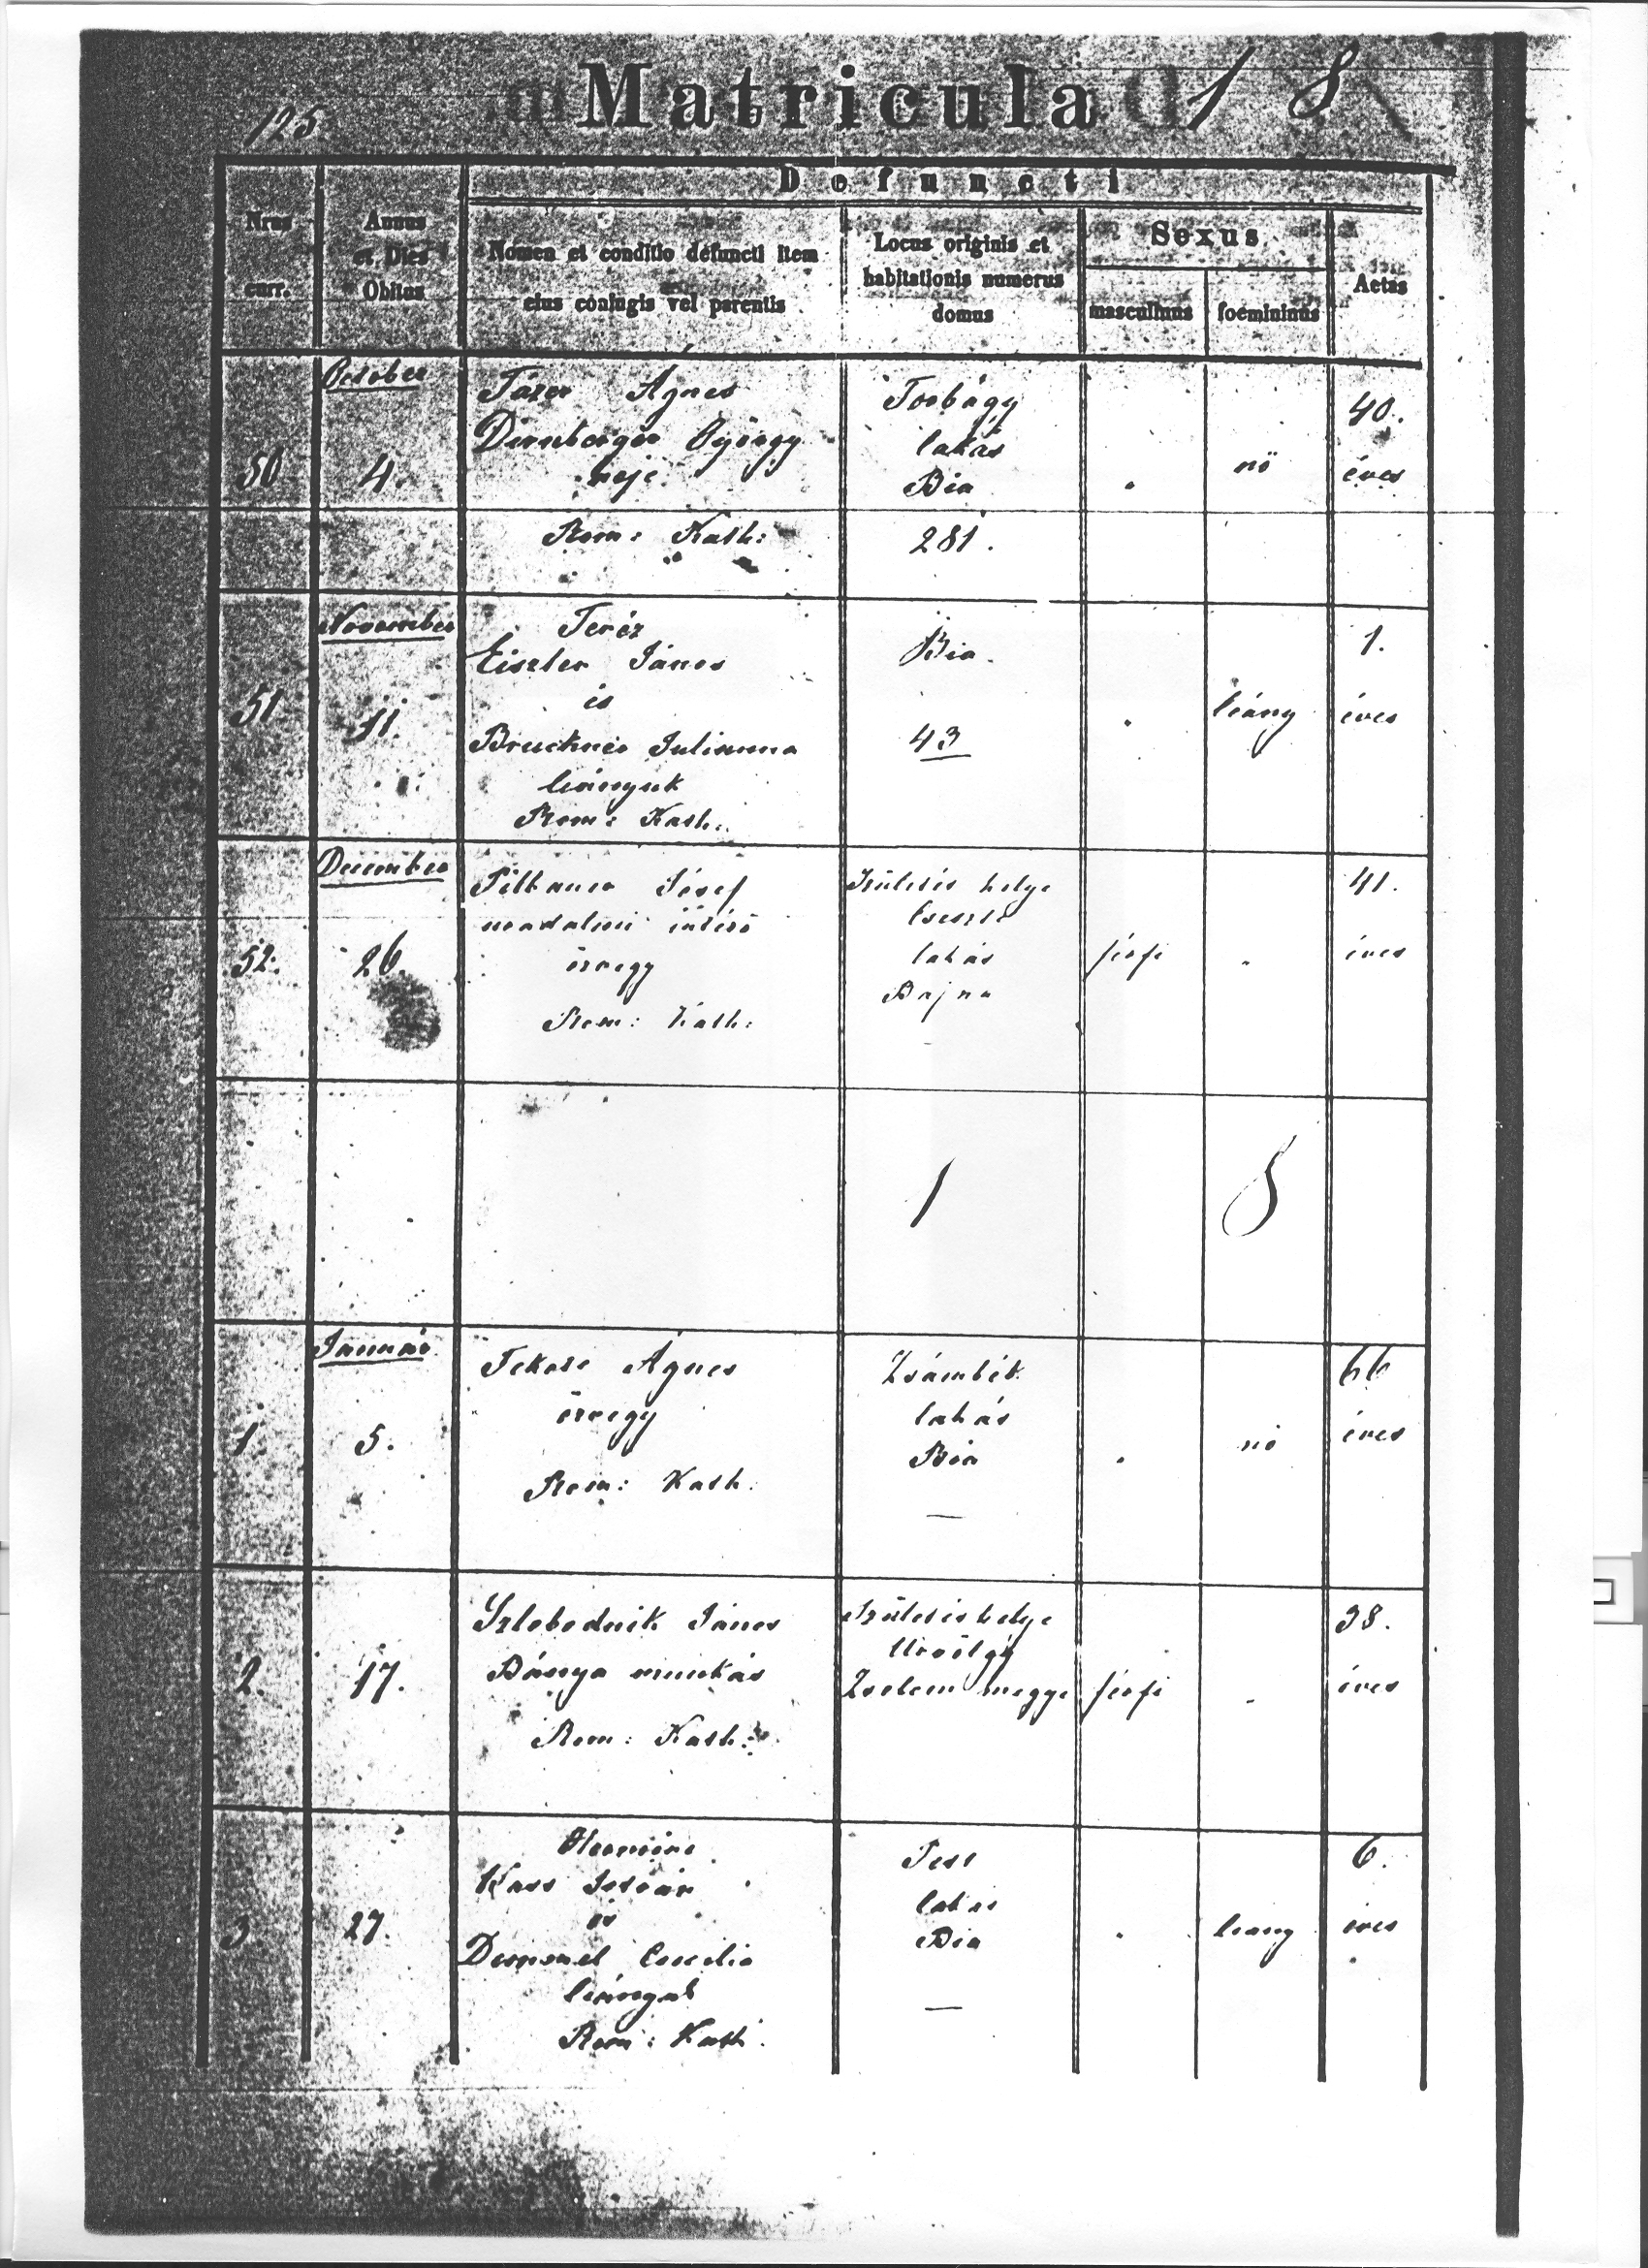 125
Matricula 1 8
Defuncti
Nrus curr.
Annus et Dies Obitus
Nomen et conditio defuncti item eius coniugis vel parentis
Locus originis et habitationis numerus domus
Sexus
masculinus
foemininus
Aetas
October
50
4.
Ágnes
György
neje
Rom: Kath:
Torbágy
lakás
Bia
281.
nö
40.
éves
November
51
11.
Teréz
Eiszler János
és
Bruckner Julianna
leányuk
Rom: Kath:
Bia.
43
leány
1.
éves
December
52.
26.
József
uradalmi intéző
özvegy
Rom: Kath:
Születés helye
lakás
Bajna
férfi
41.
éves
1 8
Január
1.
5.
Fekete Ágnes
özvegy
Rom: Kath.
Zsámbék
lakás
Bia
—
nö
66
éves
2.
17.
Szlobodnik János
Bánya munkás
Rom: Kath:
Születés helye
Úrvölgy
megye
férfi
38.
éves
3
27.
Kass István
és
Cecilia
leányuk
Rom: Kath.
Pest
lakás
Bia
—
leany
6.
éves